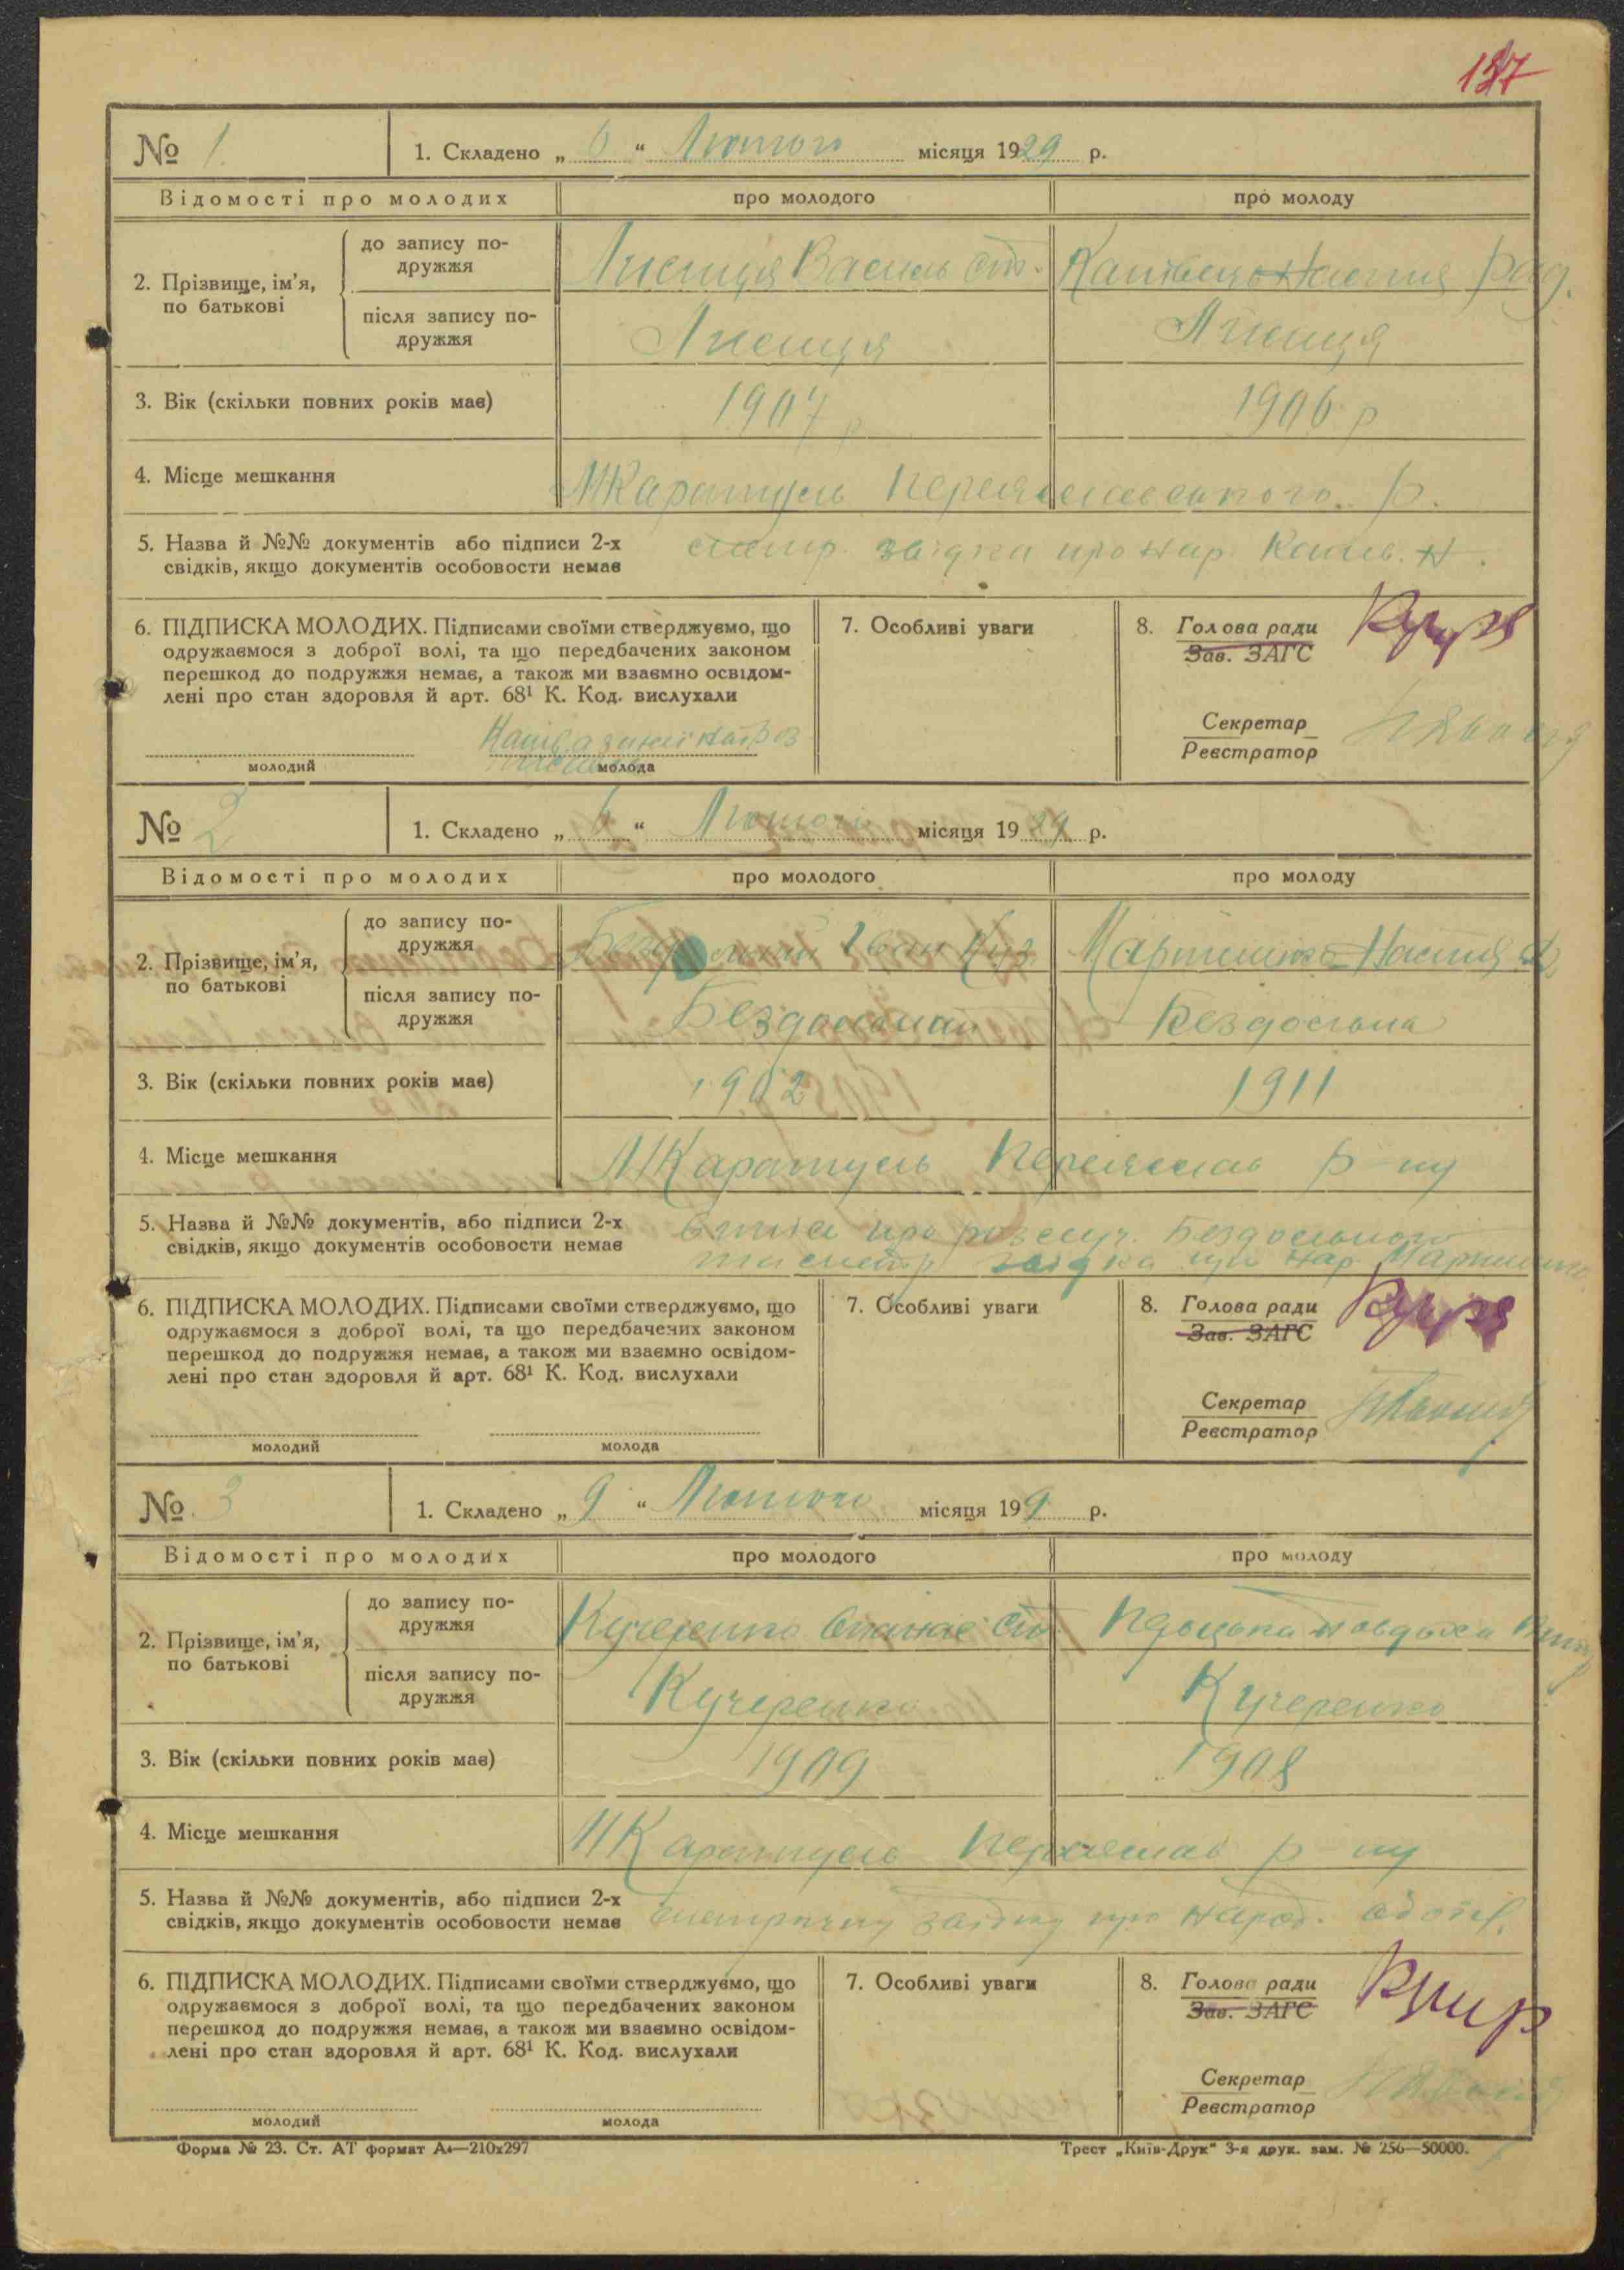 187
№ 1. 1. Складено „ 6 “ Лютого місяця 1929 р.
Відомості про молодих про молодого про молоду
2. Прізвище, ім’я, по батькові
до запису подружжя Лисиця Василь Ст. Настя
після запису подружжя Лисиця Лисиця
3. Вік (скільки повних років має) 1907 р 1906 р
4. Місце мешкання Каратуль Переяславського р.
5. Назва й №№ документів або підписи 2-х
свідків, якщо документів особовости немає
звідка про нар.
6. ПІДПИСКА МОЛОДИХ. Підписами своїми стверджуємо, що
одружаємося з доброї волі, та що передбачених законом
перешкод до подружжя немає, а також ми взаємно освідом-
лені про стан здоровля й арт. 68¹ К. Код. вислухали
молодий молода
7. Особливі уваги
8. Голова ради
Зав. ЗАГС
Секретар
Реєстратор
№ 2 1. Складено „ 6 “ Лютого місяця 1929 р.
Відомості про молодих про молодого про молоду
2. Прізвище, ім’я, по батькові
до запису подружжя Іван Куз Настя
після запису подружжя Бездольний Бездольна
3. Вік (скільки повних років має) 1902 1911
4. Місце мешкання Каратуль Переяслав р-ну
5. Назва й №№ документів, або підписи 2-х
свідків, якщо документів особовости немає
про розлуч. Бездольного
звідка про нар.
6. ПІДПИСКА МОЛОДИХ. Підписами своїми стверджуємо, що
одружаємося з доброї волі, та що передбачених законом
перешкод до подружжя немає, а також ми взаємно освідом-
лені про стан здоровля й арт. 68¹ К. Код. вислухали
молодий молода
7. Особливі уваги
8. Голова ради
Зав. ЗАГС
Секретар
Реєстратор
№ 3 1. Складено „ 9 “ Лютого місяця 199 р.
Відомості про молодих про молодого про молоду
2. Прізвище, ім’я, по батькові
до запису подружжя Кучеренко
після запису подружжя Кучеренко Кучеренко
3. Вік (скільки повних років має) 1909 1908
4. Місце мешкання Каратуль Переяслав р-ну
5. Назва й №№ документів, або підписи 2-х
свідків, якщо документів особовости немає
про народ.
6. ПІДПИСКА МОЛОДИХ. Підписами своїми стверджуємо, що
одружаємося з доброї волі, та що передбачених законом
перешкод до подружжя немає, а також ми взаємно освідом-
лені про стан здоровля й арт. 68¹ К. Код. вислухали
молодий молода
7. Особливі уваги
8. Голова ради
Зав. ЗАГС
Секретар
Реєстратор
Форма № 23. Ст. АТ формат А₄—210х297 Трест „Київ-Друк“ 3-я друк. зам. № 256—50000.